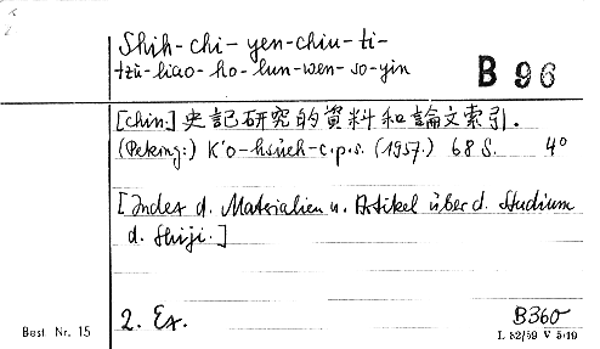 Shih-chi-yen-chiu-ti-
tzŭ-liao-ho-lun-wen-so-yin
B 96
[Chin.] 史記研究的資料和論文索引.
(Peking:) K'o-hsüeh-c.p.s. (1957.) 68 S. 4°
[Index d. Materialien u. Artikel über d. Studium
d. Shiji.]
2. Ex.
B360
Best. Nr. 15
L 82/59 V 5/19